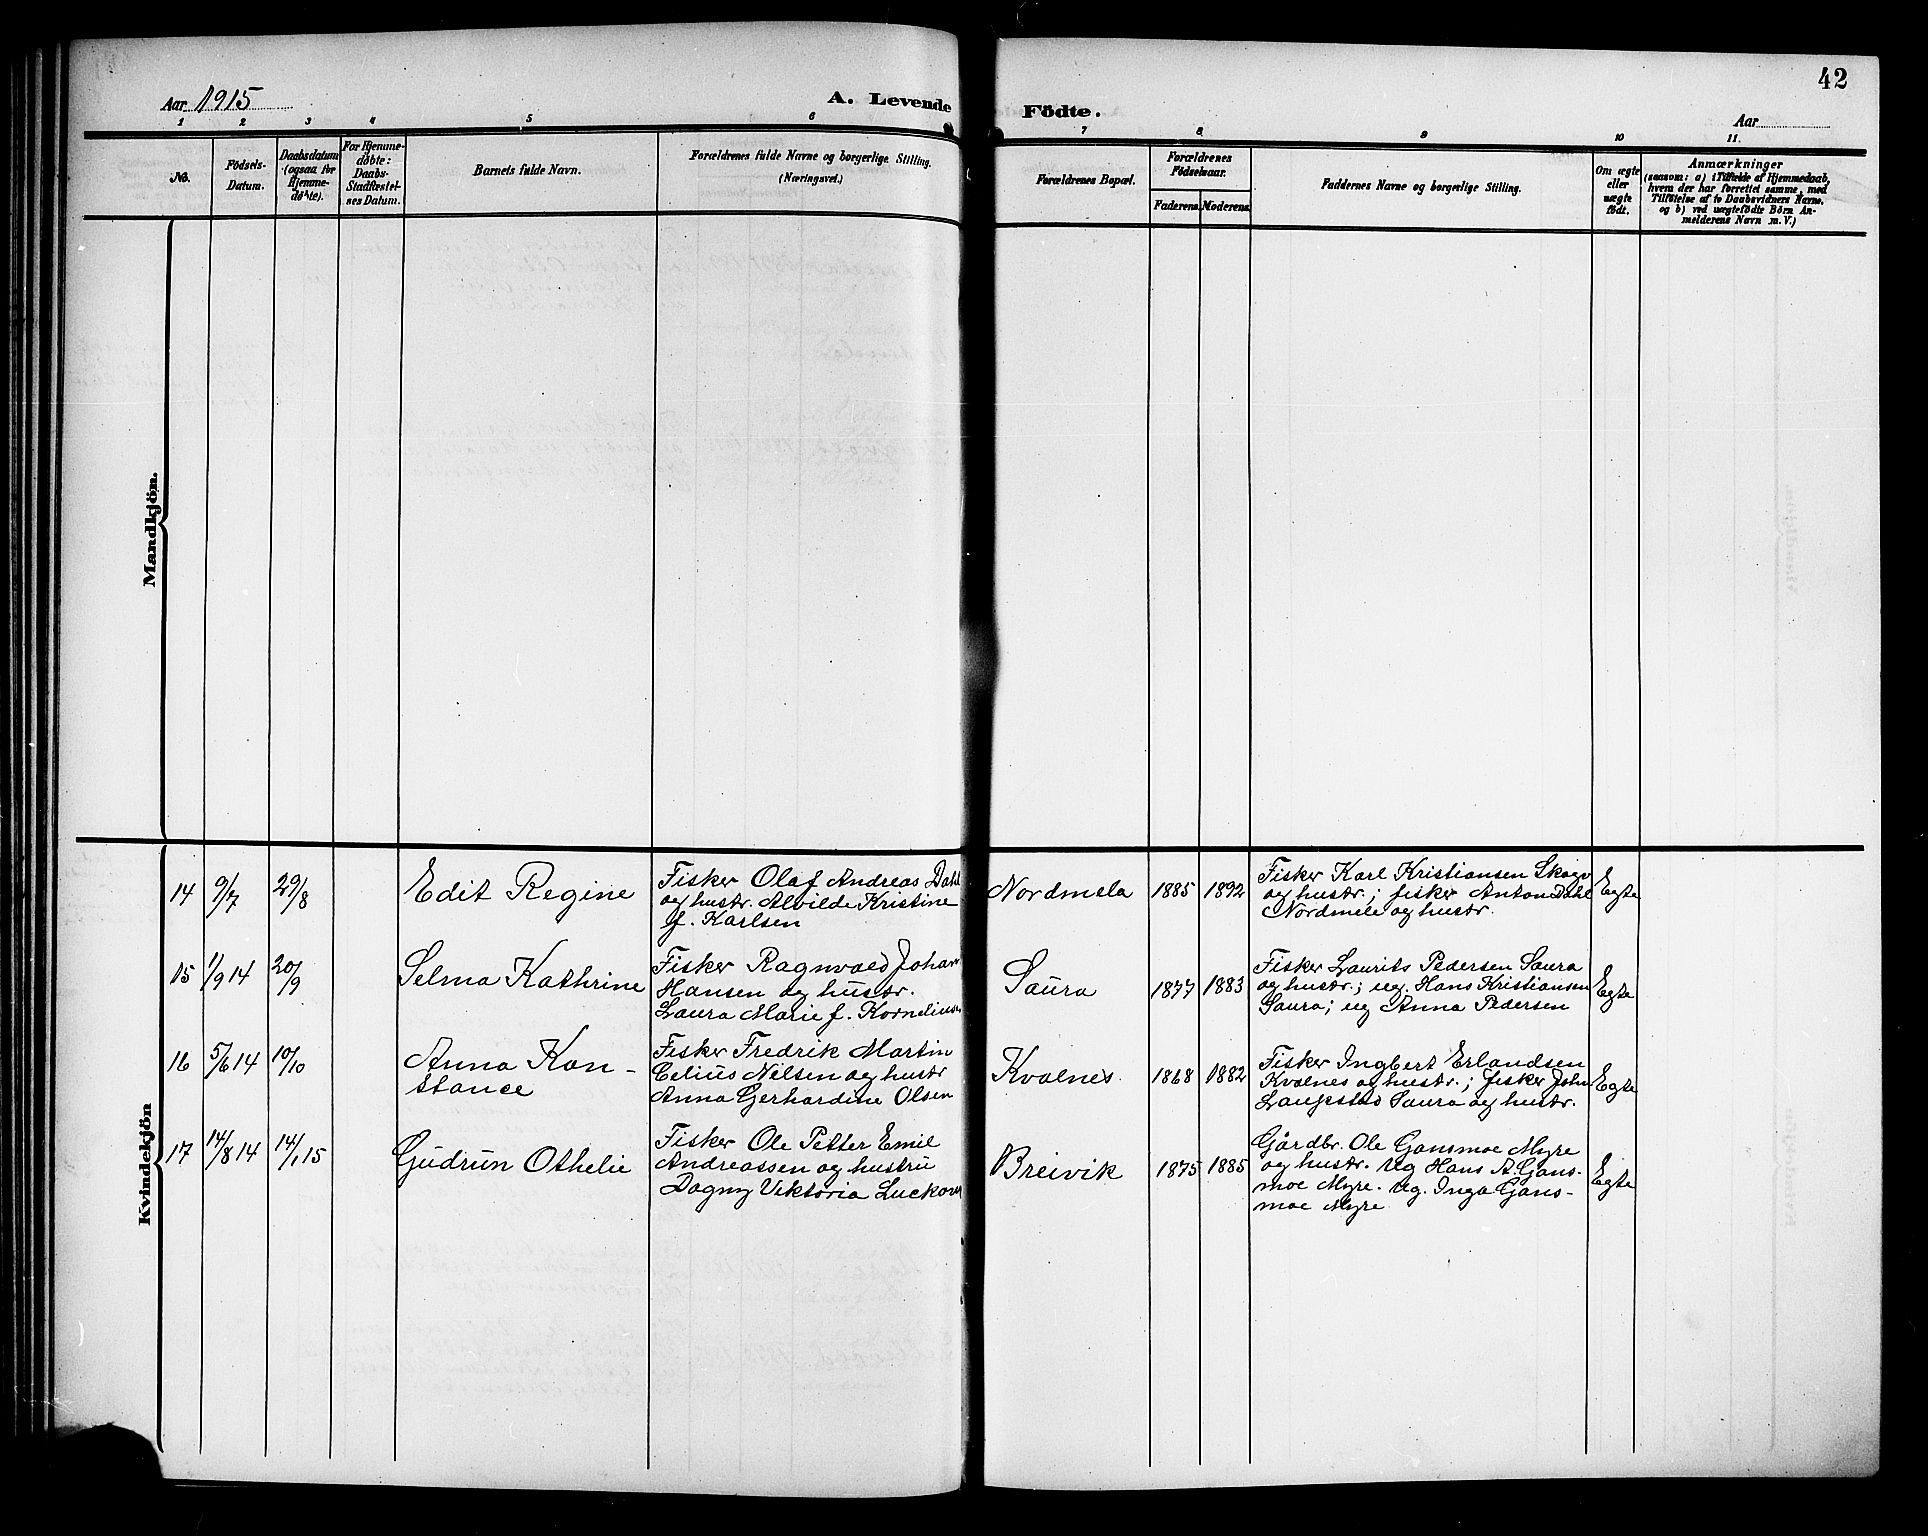 42
Aar 1915
A. Levende Födte.
Aar
1 2 3 4 5 6 7 8 9 10 11.
No.
Födsels-
Datum.
Daabsdatum
(ogsaa for
Hjemme-
døbte).
For Hjemme-
døbte:
Daabs-
Stadfæstel-
ses Datum.
Barnets fulde Navn.
Forældrenes fulde Navne og borgerlige Stilling.
(Næringsvei.)
Forældrenes Bopæl.
Forældrenes
Fødselsaar.
Faderens. Moderens.
Faddernes Navne og borgerlige Stilling.
Om ægte
eller
uægte
født.
Anmærkninger
(saasom: a) i Tilfælde af Hjemmedaab,
hvem der har forrettet samme, med
Tilføielse af to Daabsvidners Navne,
og b) ved uægtefødte Börn An-
melderens Navn m. V.)
Mandkjön.
Kvindekjön
14 9/7 29/8 Edit Regine
Fisker Olaf Andreas Dahl
og hustr. Alvilde Kristine
f. Karlsen
Nordmela 1885 1892
Fisker Karl Kristiansen Skogv
og hustr.; fisker Anton Dahl
Nordmele og hustr.
Egte
15 11/9 14 20/9 Selma Kathrine
Fisker Ragnvald Johan
Hansen og hustr.
Laura Marie f. Kornelius
Saura 1877 1883
Fisker Laurits Pedersen Saura
og hustr.; ug. Hans Kristiansen
Saura; ug Anna Pedersen
Egte
16 5/6 14 10/10 Anna Kon-
stance
Fisker Fredrik Martin
Celius Nilsen og hustr
Anna Gerhardine Olsen
Kvalnes 1868 1882
Fisker Ingbert Erlandsen
Kvalnes og hustr.; fisker John
Laukstad Saura og hustr.
Egte
17 14/8 14 14/1 15 Gudrun Othelie
Fisker Ole Petter Emil
Andreassen og hustru
Dagny Viktoria Luckow
Breivik 1875 1885
Gårdbr. Ole Gansmoe Myre
og hustr. Ug Hans A. Gans-
moe Myre. Ug. Inga Gans-
moe Myre
Egte